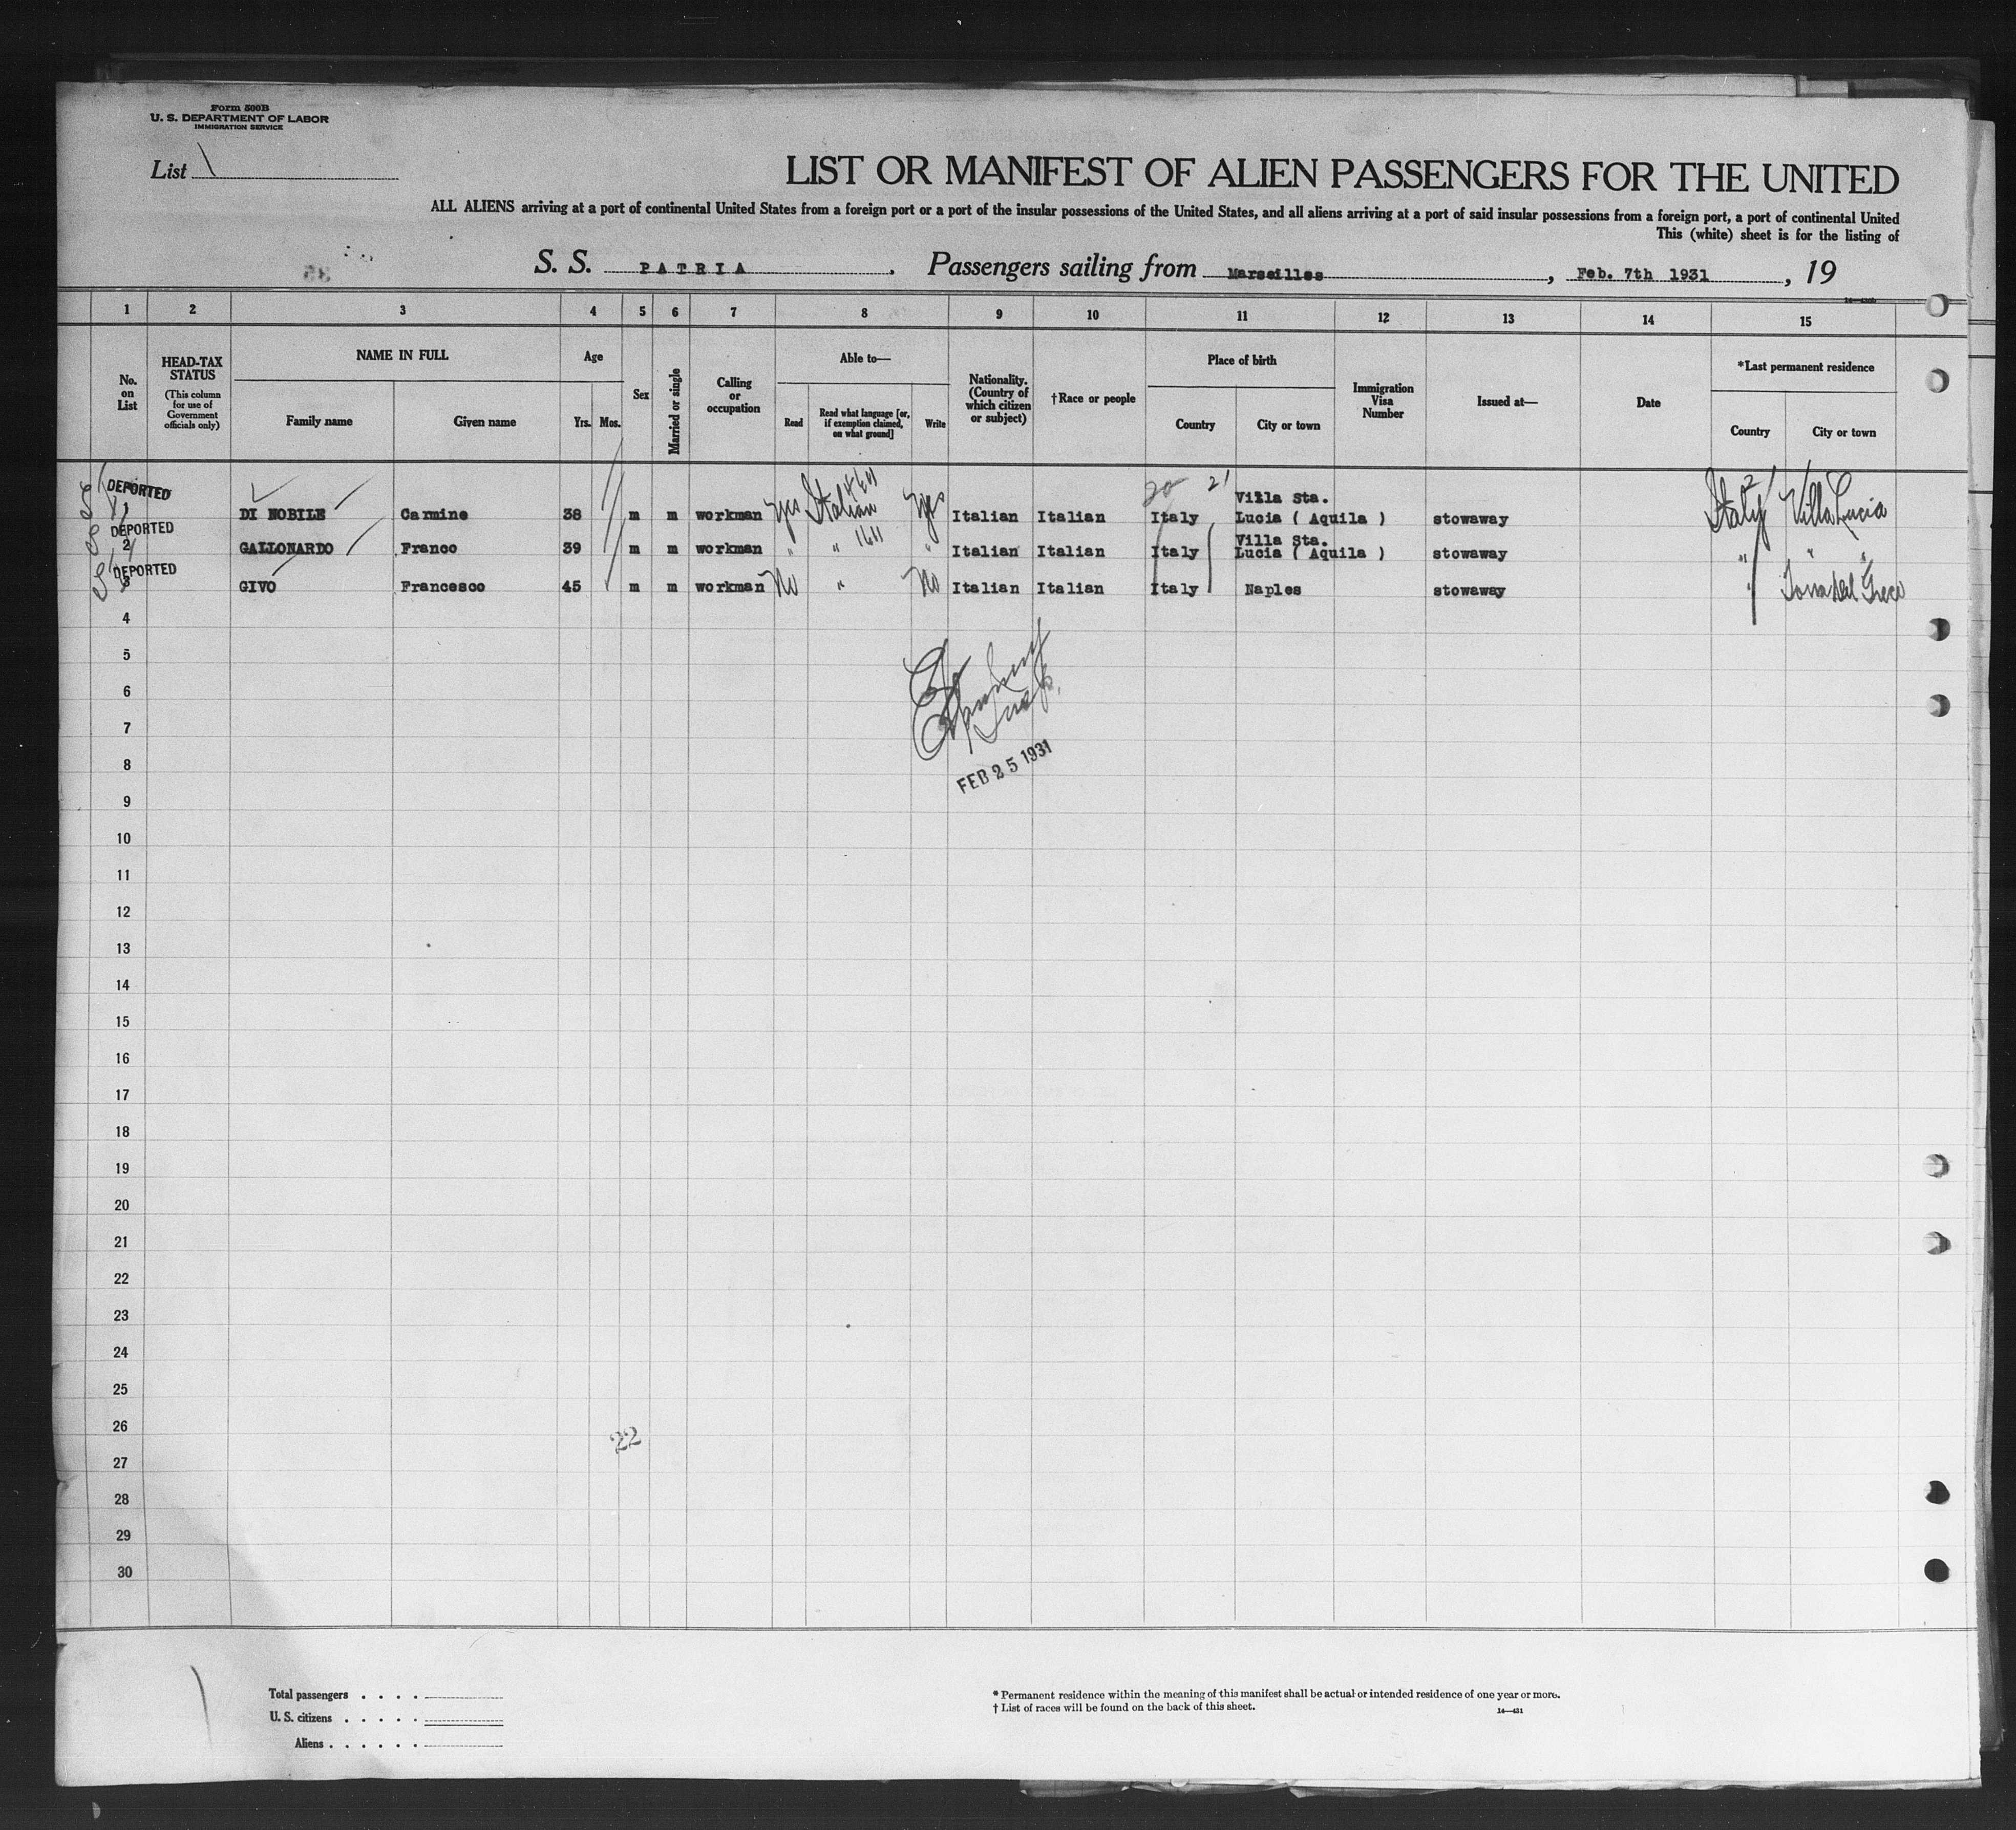 Form 500B
U. S. DEPARTMENT OF LABOR
IMMIGRATION SERVICE
List 1
LIST OR MANIFEST OF ALIEN PASSENGERS FOR THE UNITED
ALL ALIENS arriving at a port of continental United States from a foreign port or a port of the insular possessions of the United States, and all aliens arriving at a port of said insular possessions from a foreign port, a port of continental United
This (white) sheet is for the listing of
S. S. PATRIA. Passengers sailing from Marseilles, Feb. 7th 1931, 19
1 2 3 4 5 6 7 8 9 10 11 12 13 14 15
No. on List
HEAD-TAX STATUS
(This column for use of Government officials only)
NAME IN FULL
Family name Given name
Age
Yrs. Mos.
Sex
Married or single
Calling or occupation
Able to—
Read
Read what language [or, if exemption claimed, on what ground]
Write
Nationality. (Country of which citizen or subject)
†Race or people
Place of birth
Country City or town
Immigration Visa Number
Issued at—
Date
*Last permanent residence
Country City or town
DEPORTED
20 21 Villa Sta. 21
1 DI NOBILE Carmine 38 m m workman Yes Italian Yes Italian Italian Italy Lucia ( Aquila ) stowaway Italy Villa Lucia
DEPORTED
Villa Sta.
2 GALLONARDO Franco 39 m m workman " " " Italian Italian Italy Lucia ( Aquila ) stowaway " " "
DEPORTED
3 GIVO Francesco 45 m m workman No " No Italian Italian Italy Naples stowaway " Torre del Greco
4
5
6
7
FEB 25 1931
8
9
10
11
12
13
14
15
16
17
18
19
20
21
22
23
24
25
26
22
27
28
29
30
Total passengers . . . .
U. S. citizens . . . . .
Aliens . . . . . .
* Permanent residence within the meaning of this manifest shall be actual or intended residence of one year or more.
† List of races will be found on the back of this sheet.
14—431